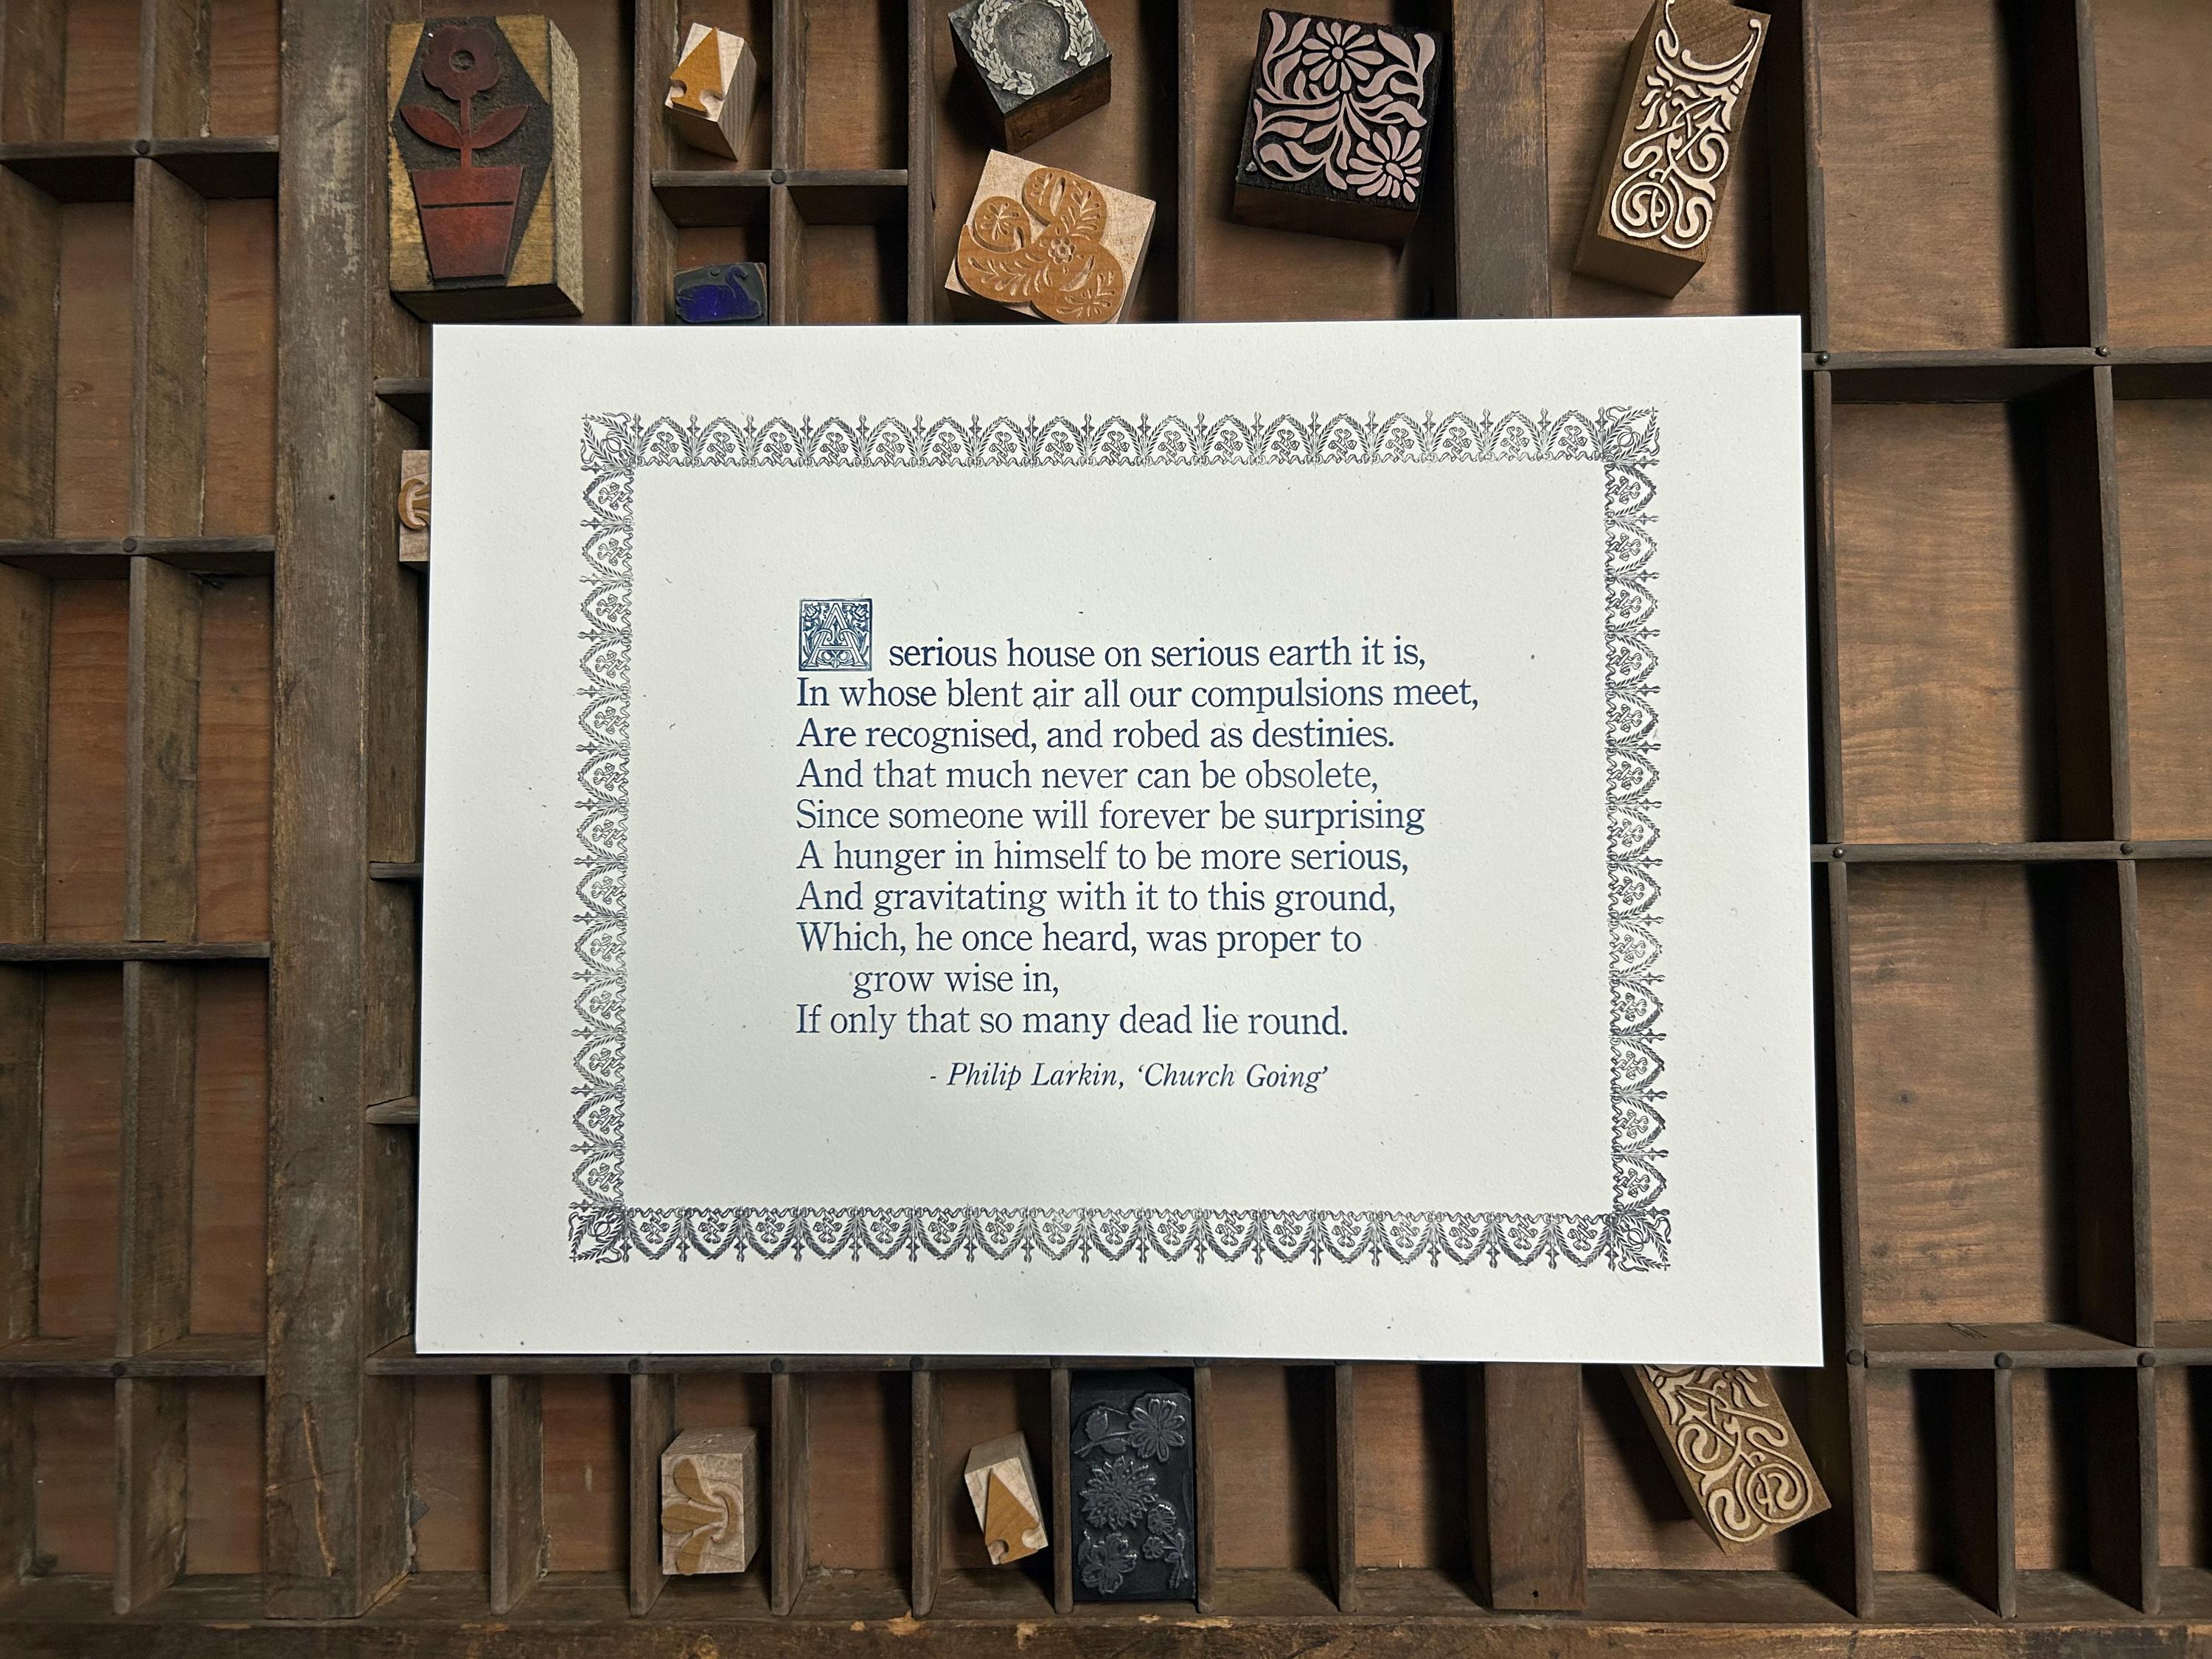 A serious house on serious earth it is,
In whose blent air all our compulsions meet,
Are recognised, and robed as destinies.
And that much never can be obsolete,
Since someone will forever be surprising
A hunger in himself to be more serious,
And gravitating with it to this ground,
Which, he once heard, was proper to
grow wise in,
If only that so many dead lie round.
- Philip Larkin, ‘Church Going’